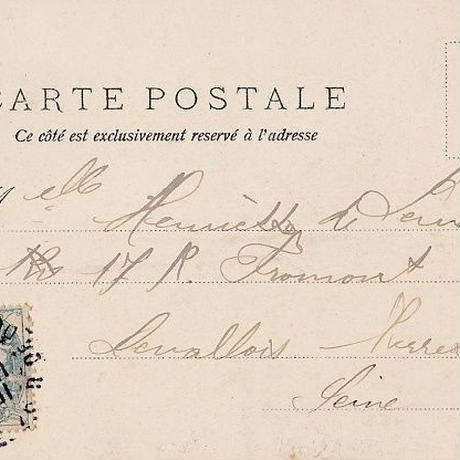 CARTE POSTALE
Ce côté est exclusivement reservé à l'adresse
Mlle Henriette de
17 R. Fromont
Levallois Perret
Seine